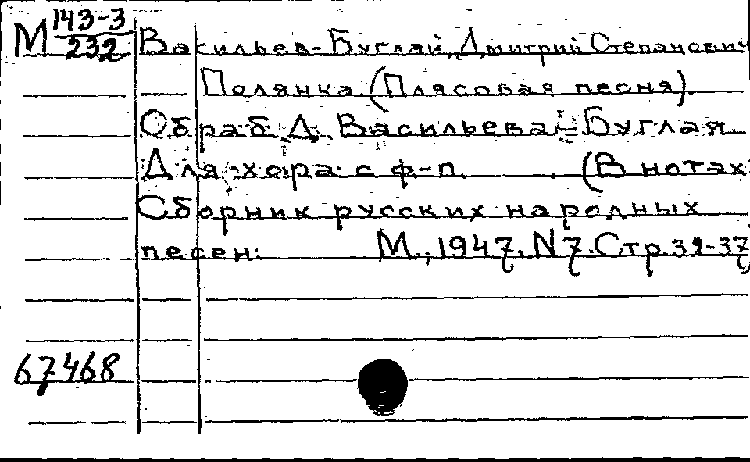 М 143-3/232 Васильев-Буглай, Дмитрий Степанович
Полянка (Плясовая песня).
Обраб. Д. Васильева-Буглая
Для хора с ф-п. (В нотах
Сборник русских народных
песен: М., 1947. N7. Стр. 32-37
67468